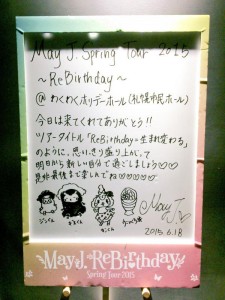 May J. Spring Tour 2015
~ReBirthday~
@ わくわくホリデーホール(札幌市民ホール)
今日は来てくれてありがとう!!
ツアータイトル「ReBirthday=生まれ変わる」
のように、思いっきり盛り上がって
明日から新しい自分で過ごしましょう♡♡♡
是非最後まで楽しんでね♡♡♡♡
May J.
2015.6.18
May J. ReBirthday
Spring Tour 2015